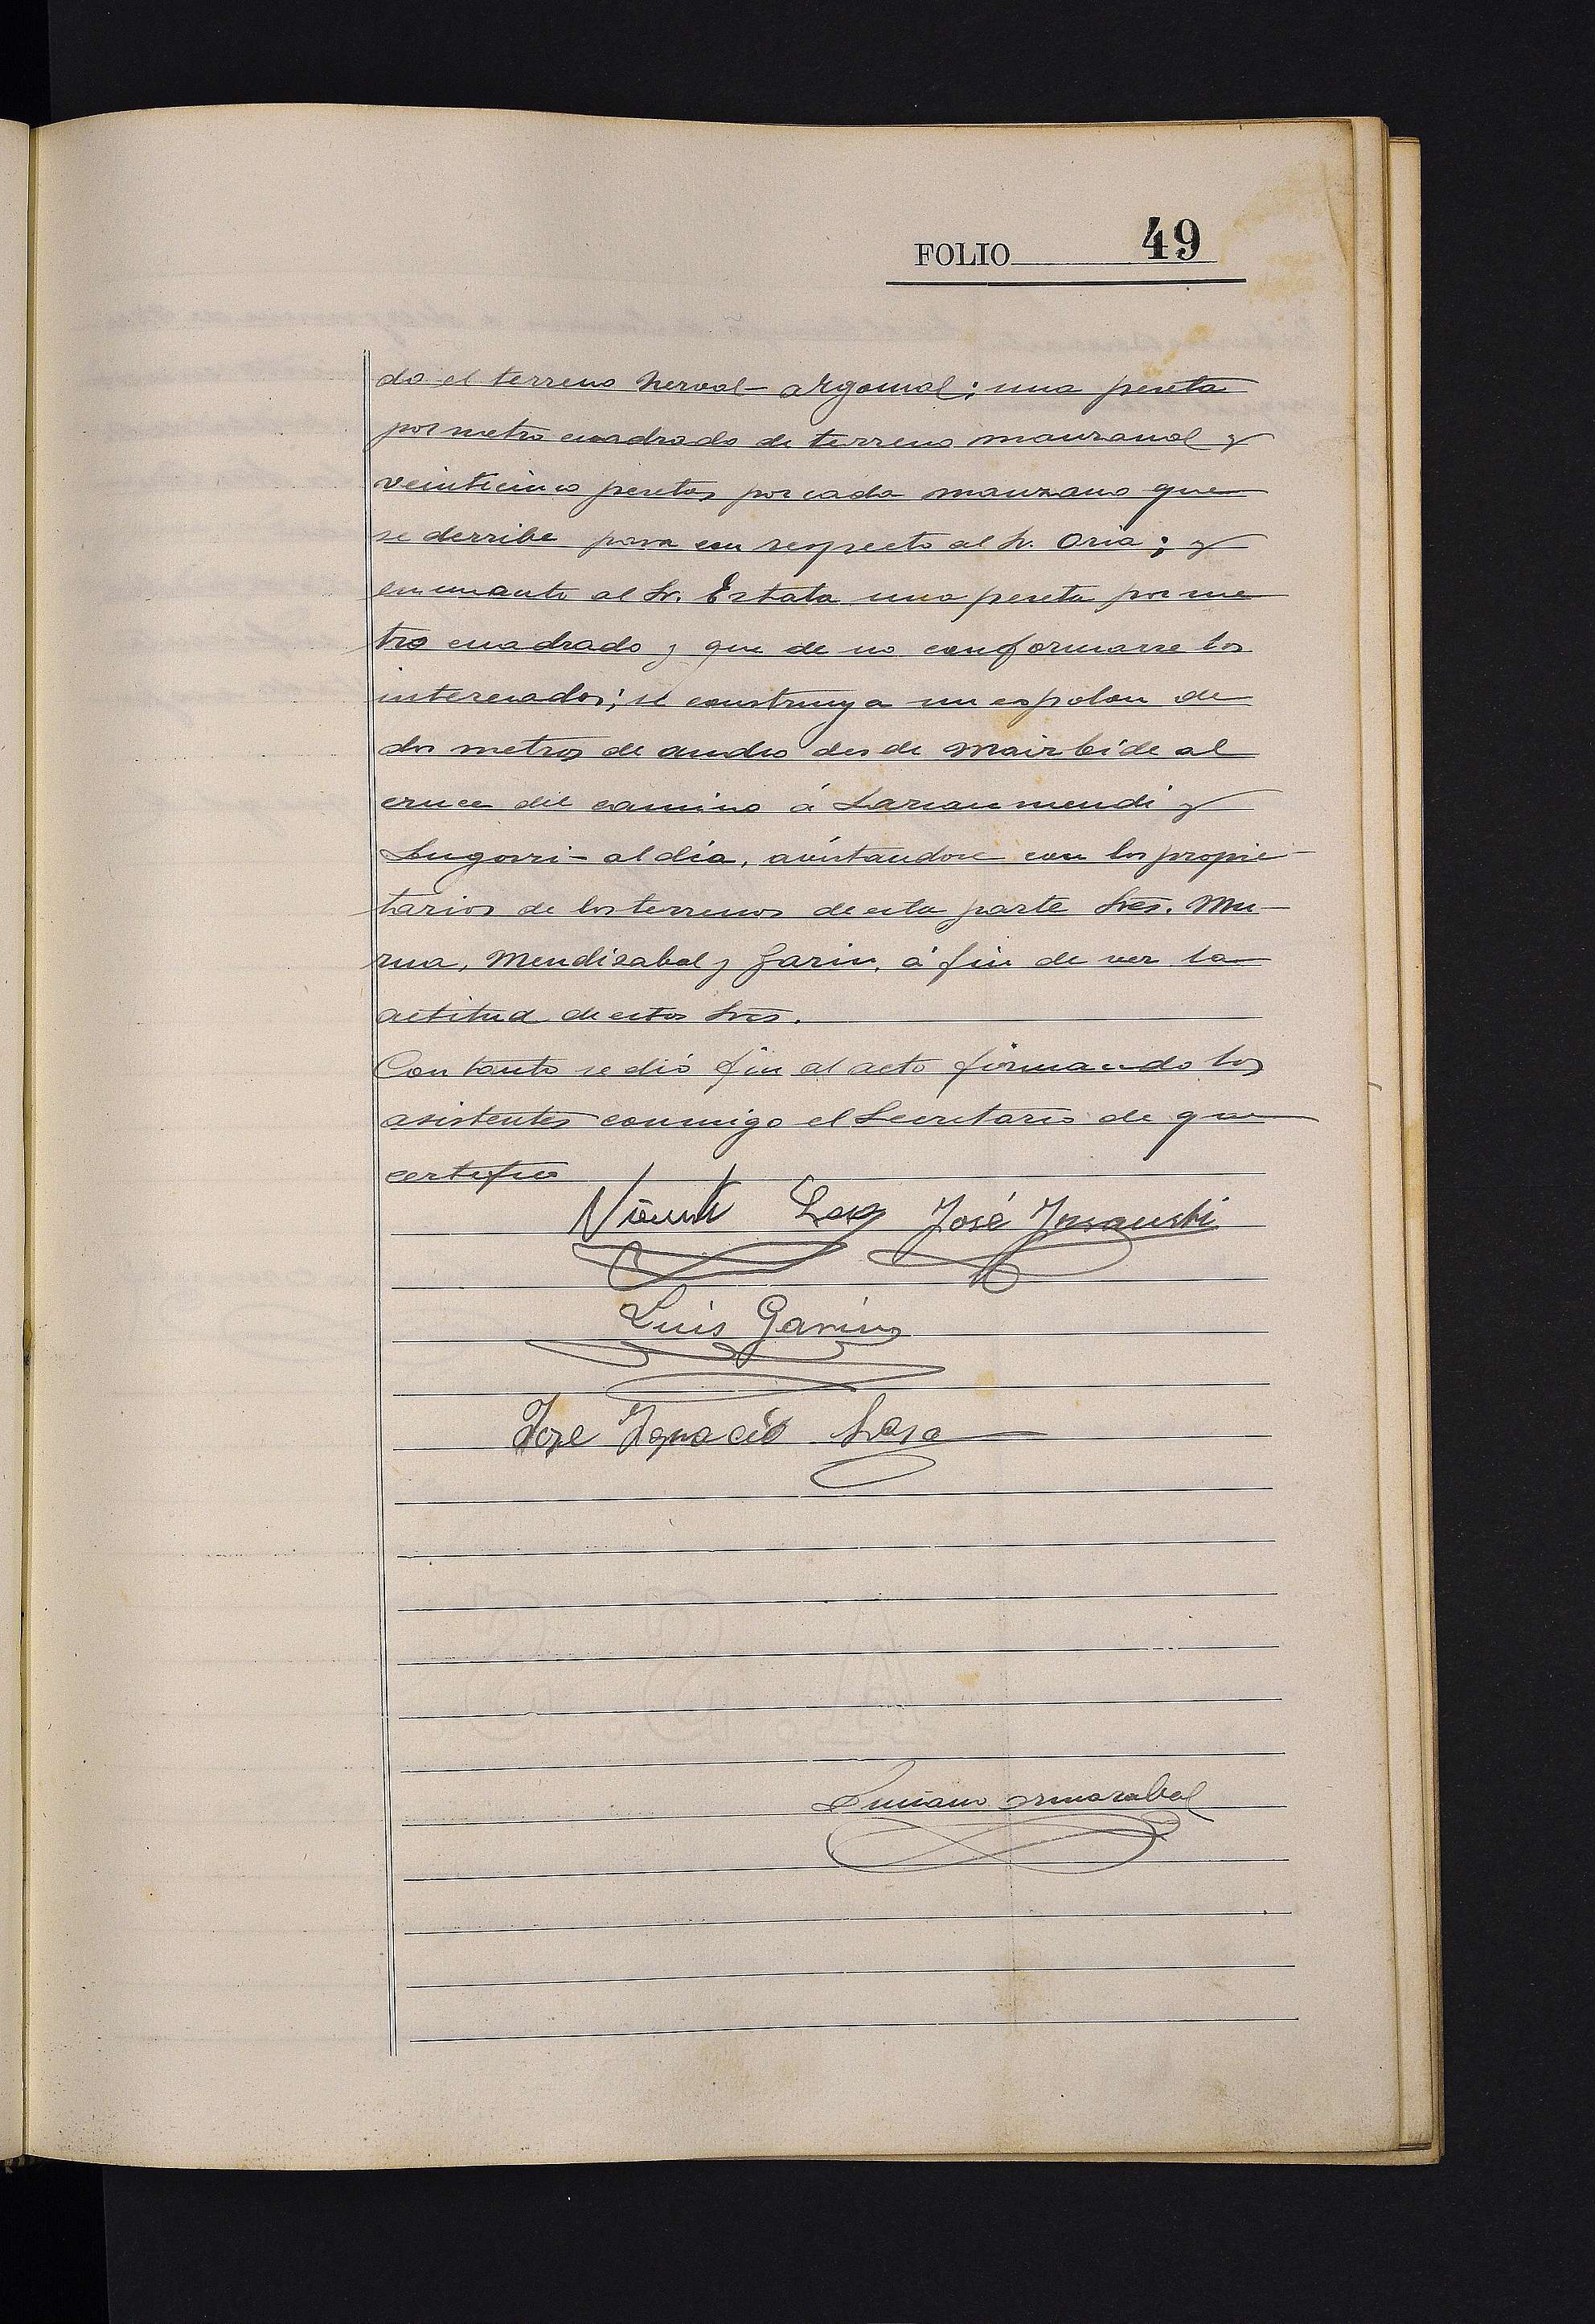 FOLIO 49
do el terreno herval-argomal; una peseta
por metro cuadrado de terreno manzanal y
veinticinco pesetas por cada manzano que
se derribe para con respecto al Sr. Oria; y
en cuanto al Sr. Estala una peseta por me
tro cuadrado y que de no conformarse los
interesados; se construya un espolon de
dos metros de ancho desde Mairbide al
cruce del camino á Lasaumendi y
Lugorri-aldia, avistandose con los propie-
tarios de los terrenos de esta parte Sres. Mu-
rua, Mendizabal y Garin, á fin de ver la
actitud de estos Sres.
Con tanto se dió fin al acto firmando los
asistentes conmigo el Secretario de que
certifico
Vicente Lasa José Insausti
Luis Garin
Jose Ignacio Lasa
Luciano Ormazabal